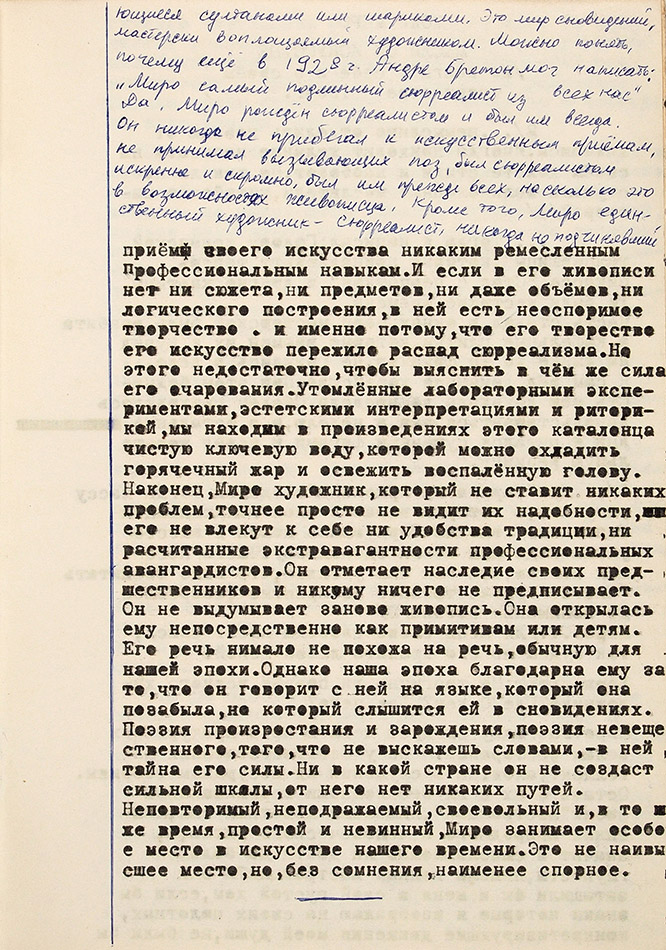 ющиеся султанами или шариками. Это мир сновидений,
мастерски воплощаемый художником. Можно понять,
почему ещё в 1928 г. Андре Бретон мог написать:
„Миро самый подлинный сюрреалист из всех нас"
Да, Миро рождён сюрреалистом и был им всегда.
Он никогда не прибегал к искусственным приёмам,
не принимал вызывающих поз, был сюрреалистом
искренне и скромно, был им прежде всех, насколько это
в возможностях живописца. Кроме того, Миро един-
ственный художник - сюрреалист, никогда не подчинявший
приёмы своего искусства никаким ремесленным
профессиональным навыкам.И если в его живописи
нет ни сюжета,ни предметов,ни даже объёмов,ни
логического построения,в ней есть неоспоримое
творчество . и именно потому,что его творество
его искусство пережило распад сюрреализма.Но
этого недостаточно,чтобы выяснить в чём же сила
его очарования.Утомлённые лабораторными экспе-
риментами,эстетскими интерпретациями и ритори-
кой,мы находим в произведениях этого каталонца
чистую ключевую воду,которой можно охдадить
горячечный жар и освежить воспалённую голову.
Наконец,Миро художник,который не ставит никаких
проблем,точнее просто не видит их надобности,
его не влекут к себе ни удобства традиции,ни
расчитанные экстравагантности профессиональных
авангардистов.Он отметает наследие своих пред-
шественников и никому ничего не предписывает.
Он не выдумывает заново живопись.Она открылась
ему непосредственно как примитивам или детям.
Его речь нимало не похожа на речь,обычную для
нашей эпохи.Однако наша эпоха благодарна ему за
то,что он говорит с ней на языке,который она
позабыла,но который слышится ей в сновидениях.
Поэзия произростания и зарождения,поэзия невеще
ственного,того,что не выскажешь словами,-в ней
тайна его силы.Ни в какой стране он не создаст
сильной шкалы,от него нет никаких путей.
Неповторимый,неподражаемый,своевольный и,в то ж
же время,простой и невинный,Миро занимает особо
е место в искусстве нашего времени.Это не наивы
сшее место,но,без сомнения,наименее спорное.